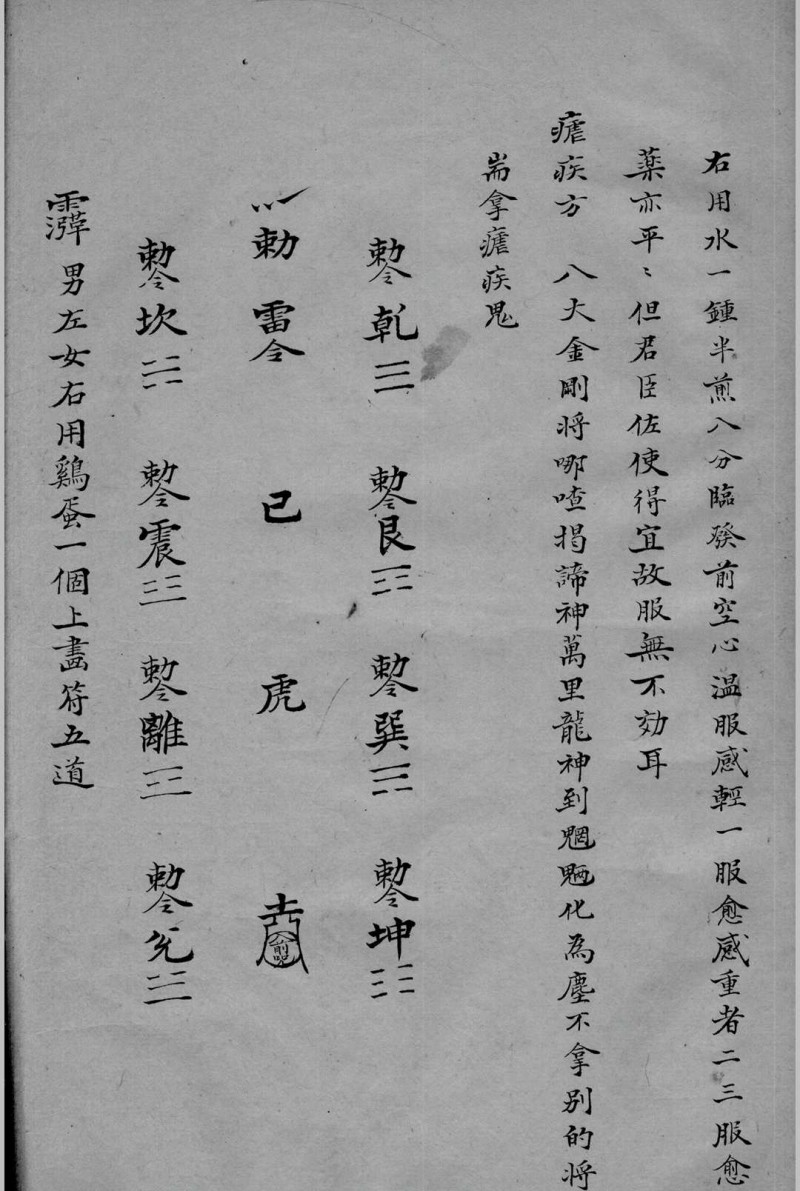 右用水一鍾半煎八分臨發前空心溫服感輕一服愈感重者二三服愈
藥亦平〻但君臣佐使得宜故服無不効耳
瘧疾方 八大金剛將哪喳揭諦神萬里龍神到魍魎化為塵不拿別的將
耑拿瘧疾鬼
敕令乾☰ 敕令艮☶ 敕令巽☴ 敕令坤☷
勅雷令 已 虎
敕令坎☵ 敕令震☳ 敕令離☲ 敕令兌☱
男左女右用鷄蛋一個上畫符五道